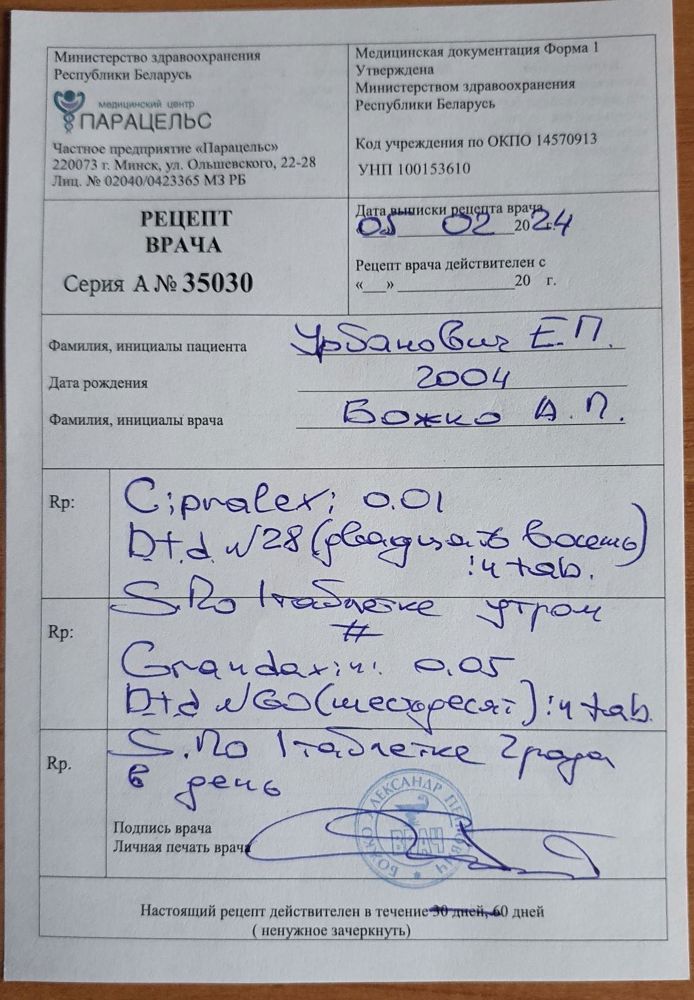 Министерство здравоохранения
Республики Беларусь
медицинский центр
ПАРАЦЕЛЬС
Частное предприятие «Парацельс»
220073 г. Минск, ул. Ольшевского, 22-28
Лиц. № 02040/0423365 МЗ РБ
Медицинская документация Форма 1
Утверждена
Министерством здравоохранения
Республики Беларусь
Код учреждения по ОКПО 14570913
УНП 100153610
РЕЦЕПТ
ВРАЧА
Серия А № 35030
Дата выписки рецепта врача
05 02 2024
Рецепт врача действителен с
«___» ______________20 г.
Фамилия, инициалы пациента Урбанович Е.П.
Дата рождения 2004
Фамилия, инициалы врача Божко А.П.
Rp: Cipralexi 0.01
D.t.d. №28 (двадцать восемь)
in tab.
S. По 1 таблетке утром
#
Rp: Grandaxini 0.05
D.t.d №60 (шестьдесят) in tab.
Rp. S. По 1 таблетке 2 раза
в день
Подпись врача
Личная печать врача
БОЖКО АЛЕКСАНДР ПЕТРОВИЧ
ВРАЧ
Настоящий рецепт действителен в течение 30 дней, 60 дней
( ненужное зачеркнуть)